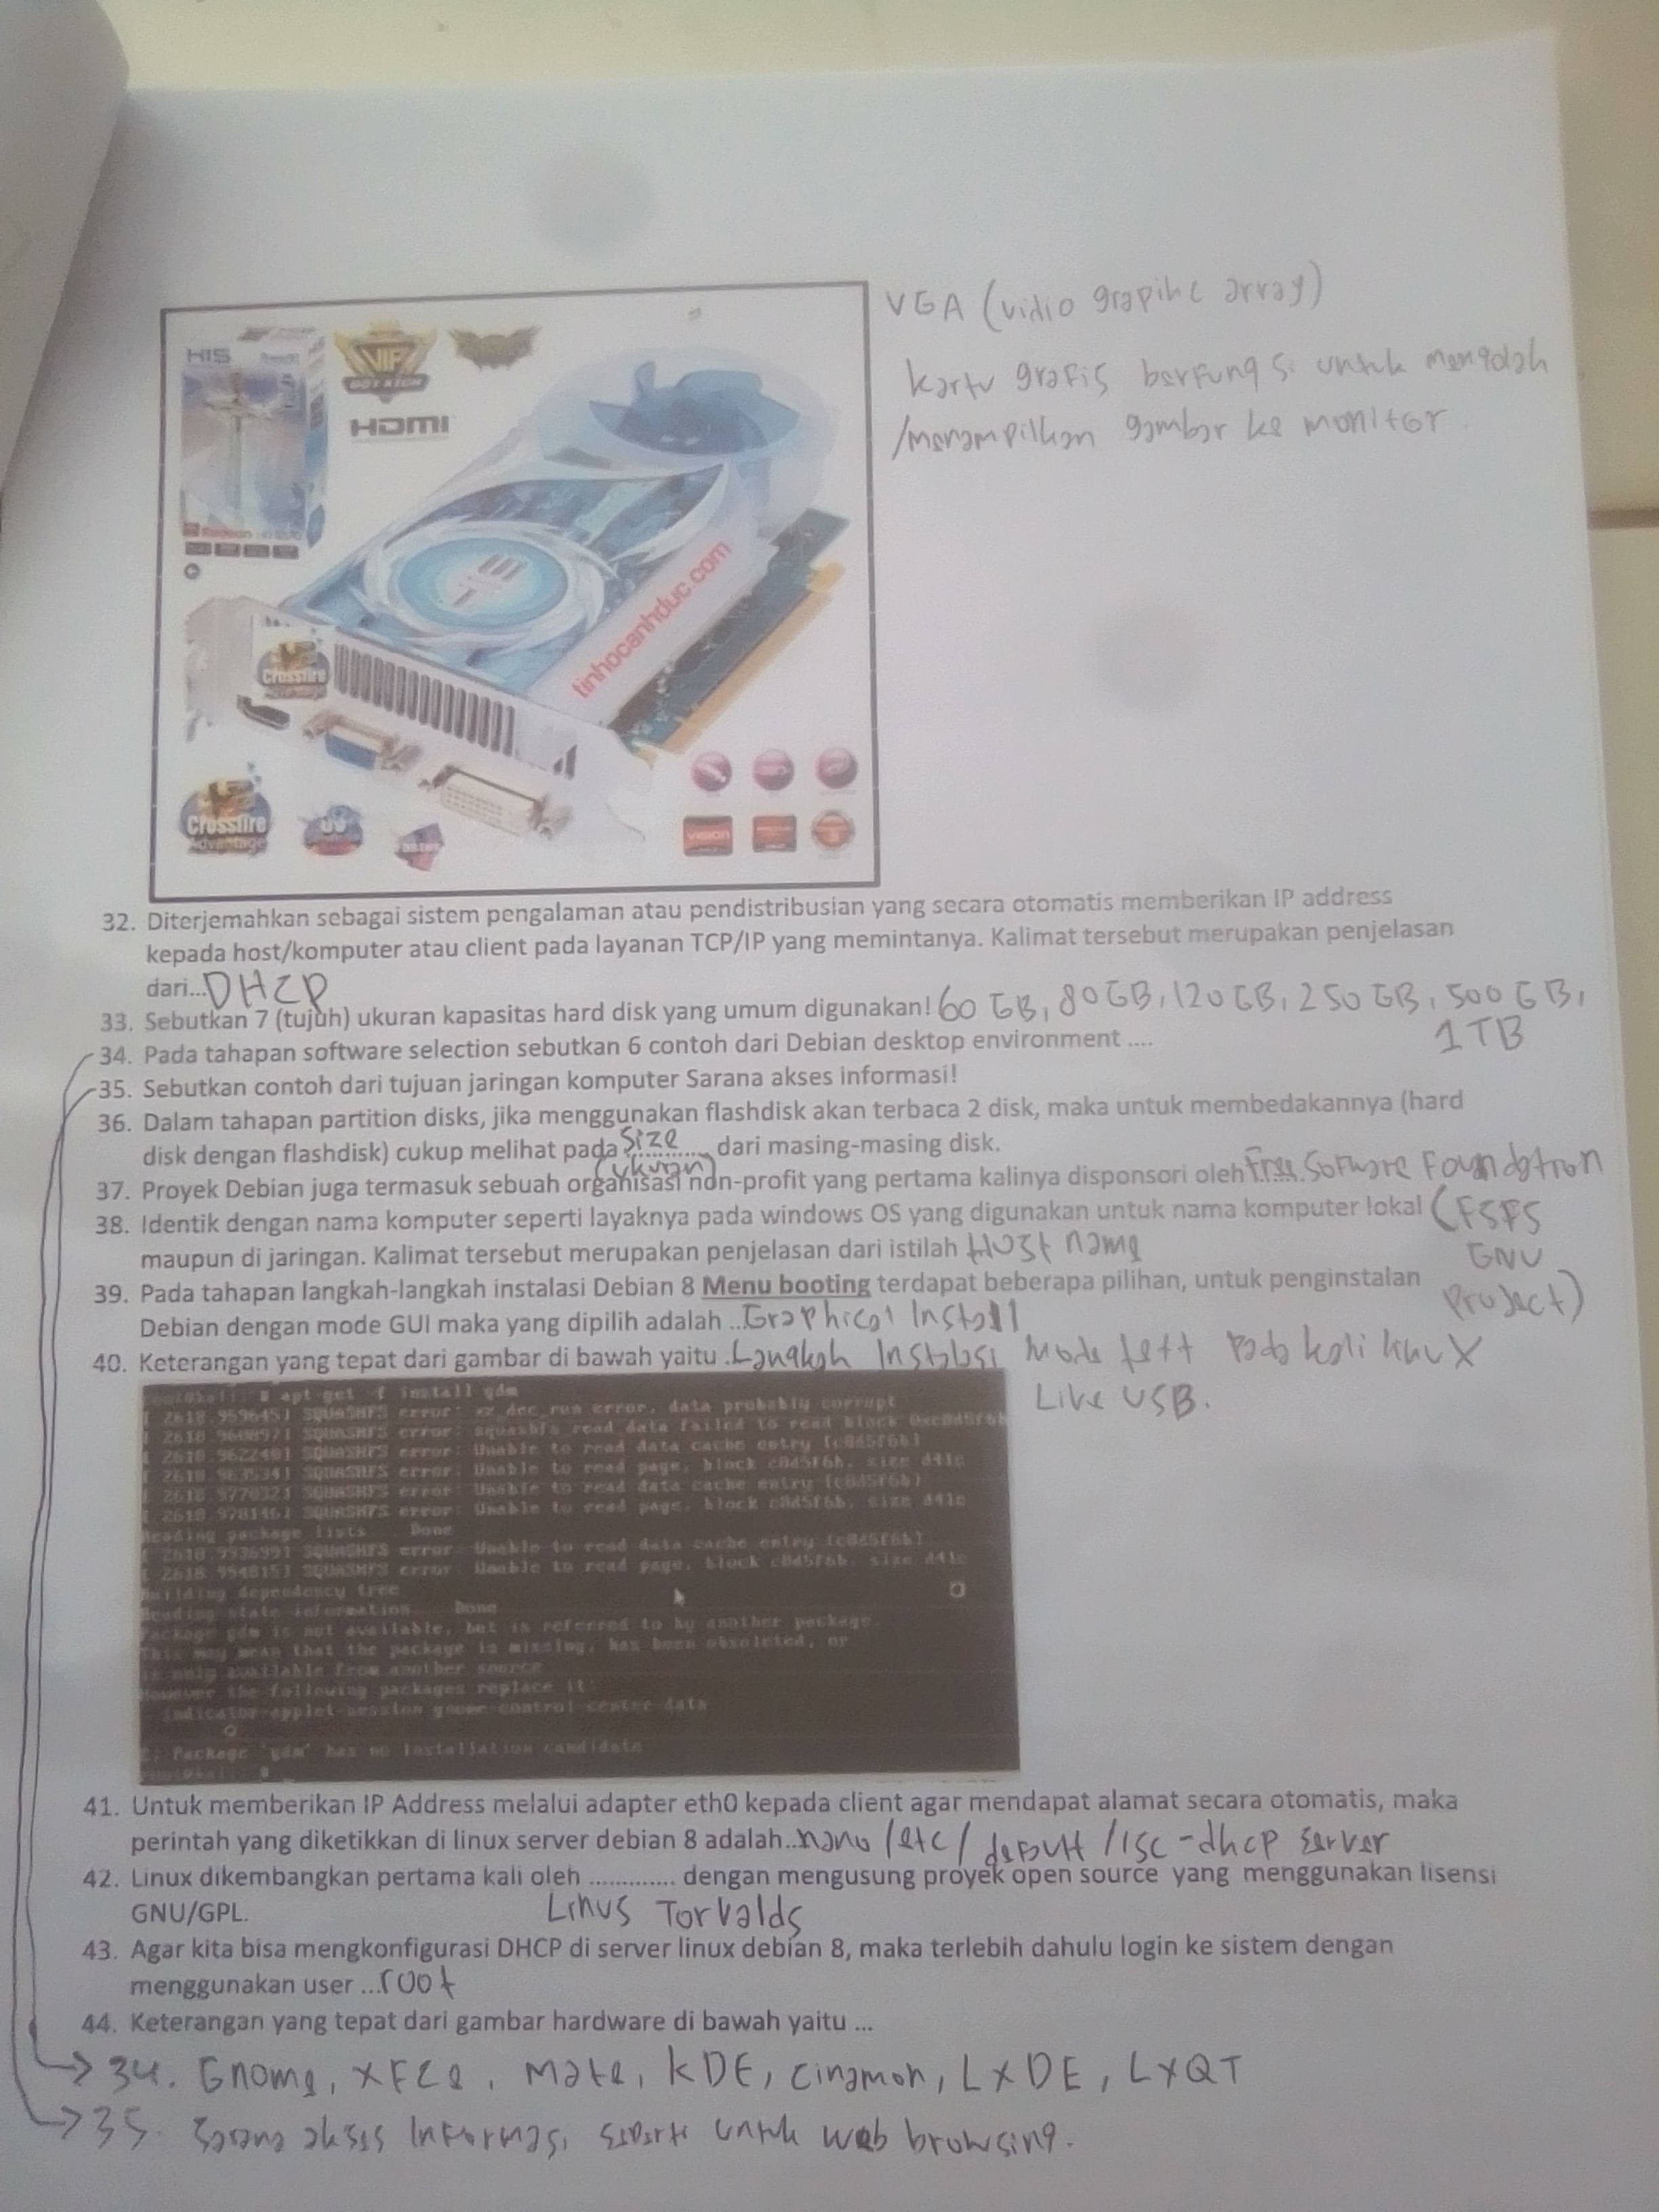 VGA (vidio grapihc array)
kartu grafis berfungsi untuk mengolah
/menampilkan gambar ke monitor.
HIS
VIP
HDMI
tinhocanhduc.com
Crossfire
Crossfire
Advantage
VISION
32. Diterjemahkan sebagai sistem pengalaman atau pendistribusian yang secara otomatis memberikan IP address
kepada host/komputer atau client pada layanan TCP/IP yang memintanya. Kalimat tersebut merupakan penjelasan
dari...DHCP
33. Sebutkan 7 (tujuh) ukuran kapasitas hard disk yang umum digunakan! 60 GB, 80GB, 120 GB, 250 GB, 500 GB,
1TB
34. Pada tahapan software selection sebutkan 6 contoh dari Debian desktop environment ....
35. Sebutkan contoh dari tujuan jaringan komputer Sarana akses informasi!
36. Dalam tahapan partition disks, jika menggunakan flashdisk akan terbaca 2 disk, maka untuk membedakannya (hard
disk dengan flashdisk) cukup melihat pada Size ......... dari masing-masing disk.
(ukuran)
37. Proyek Debian juga termasuk sebuah organisasi non-profit yang pertama kalinya disponsori oleh Free Software Foundation
38. Identik dengan nama komputer seperti layaknya pada windows OS yang digunakan untuk nama komputer lokal (FSFS
maupun di jaringan. Kalimat tersebut merupakan penjelasan dari istilah Host name
GNU
39. Pada tahapan langkah-langkah instalasi Debian 8 Menu booting terdapat beberapa pilihan, untuk penginstalan
Project)
Debian dengan mode GUI maka yang dipilih adalah ...Graphical Install
40. Keterangan yang tepat dari gambar di bawah yaitu .Langkah Instalasi Mode text pada kali linux
Live USB.
# apt-get -f install gdm
[ 2618.959645] SQUASHFS error: xz_dec_run error, data probably corrupt
SQUASHFS error: squashfs_read_data failed to read block
SQUASHFS error: Unable to read data cache entry [c8d5f6b]
SQUASHFS error: Unable to read page, block c8d5f6b, size d41c
SQUASHFS error: Unable to read data cache entry [c8d5f6b]
SQUASHFS error: Unable to read page, block c8d5f6b, size d41c
Reading package lists... Done
SQUASHFS error: Unable to read data cache entry [c8d5f6b]
SQUASHFS error: Unable to read page, block c8d5f6b, size d41c
Building dependency tree
Reading state information... Done
Package gdm is not available, but is referred to by another package.
This may mean that the package is missing, has been obsoleted, or
is only available from another source
However the following packages replace it:
indicator-applet-session gnome-control-center-data
E: Package 'gdm' has no installation candidate
41. Untuk memberikan IP Address melalui adapter eth0 kepada client agar mendapat alamat secara otomatis, maka
perintah yang diketikkan di linux server debian 8 adalah..nano /etc/default/isc-dhcp server
42. Linux dikembangkan pertama kali oleh ............. dengan mengusung proyek open source yang menggunakan lisensi
GNU/GPL.
Linus Torvalds
43. Agar kita bisa mengkonfigurasi DHCP di server linux debian 8, maka terlebih dahulu login ke sistem dengan
menggunakan user ...root
44. Keterangan yang tepat dari gambar hardware di bawah yaitu ...
→ 34. Gnome, XFCe, Mate, KDE, cinamon, LXDE, LXQT
→ 35. Sarana akses Informasi seperti untuk web browsing.